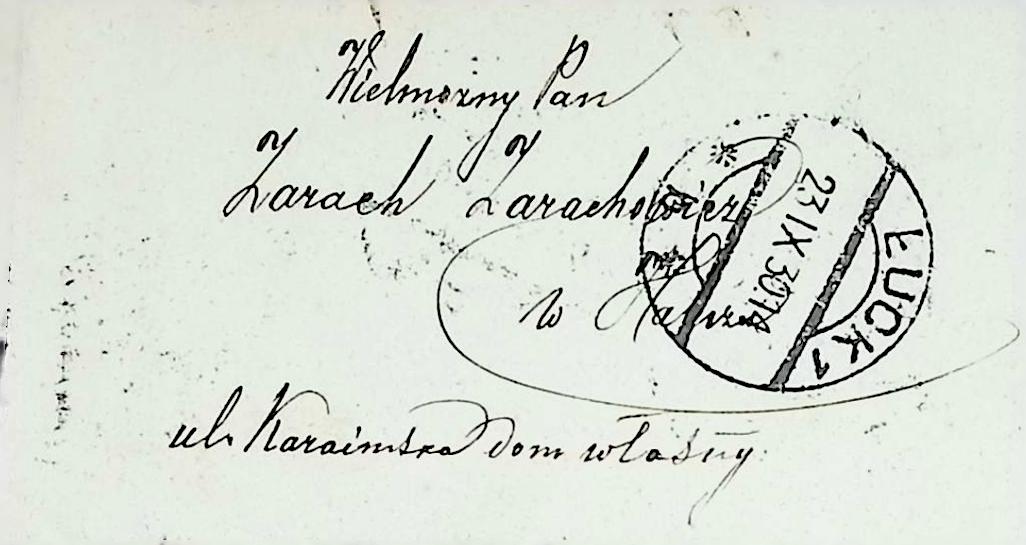 Wielmożny Pan
Zarach Zarachowicz
w Haliczu
ul. Karaimska dom własny
ŁUCK 1
23 IX 30.14